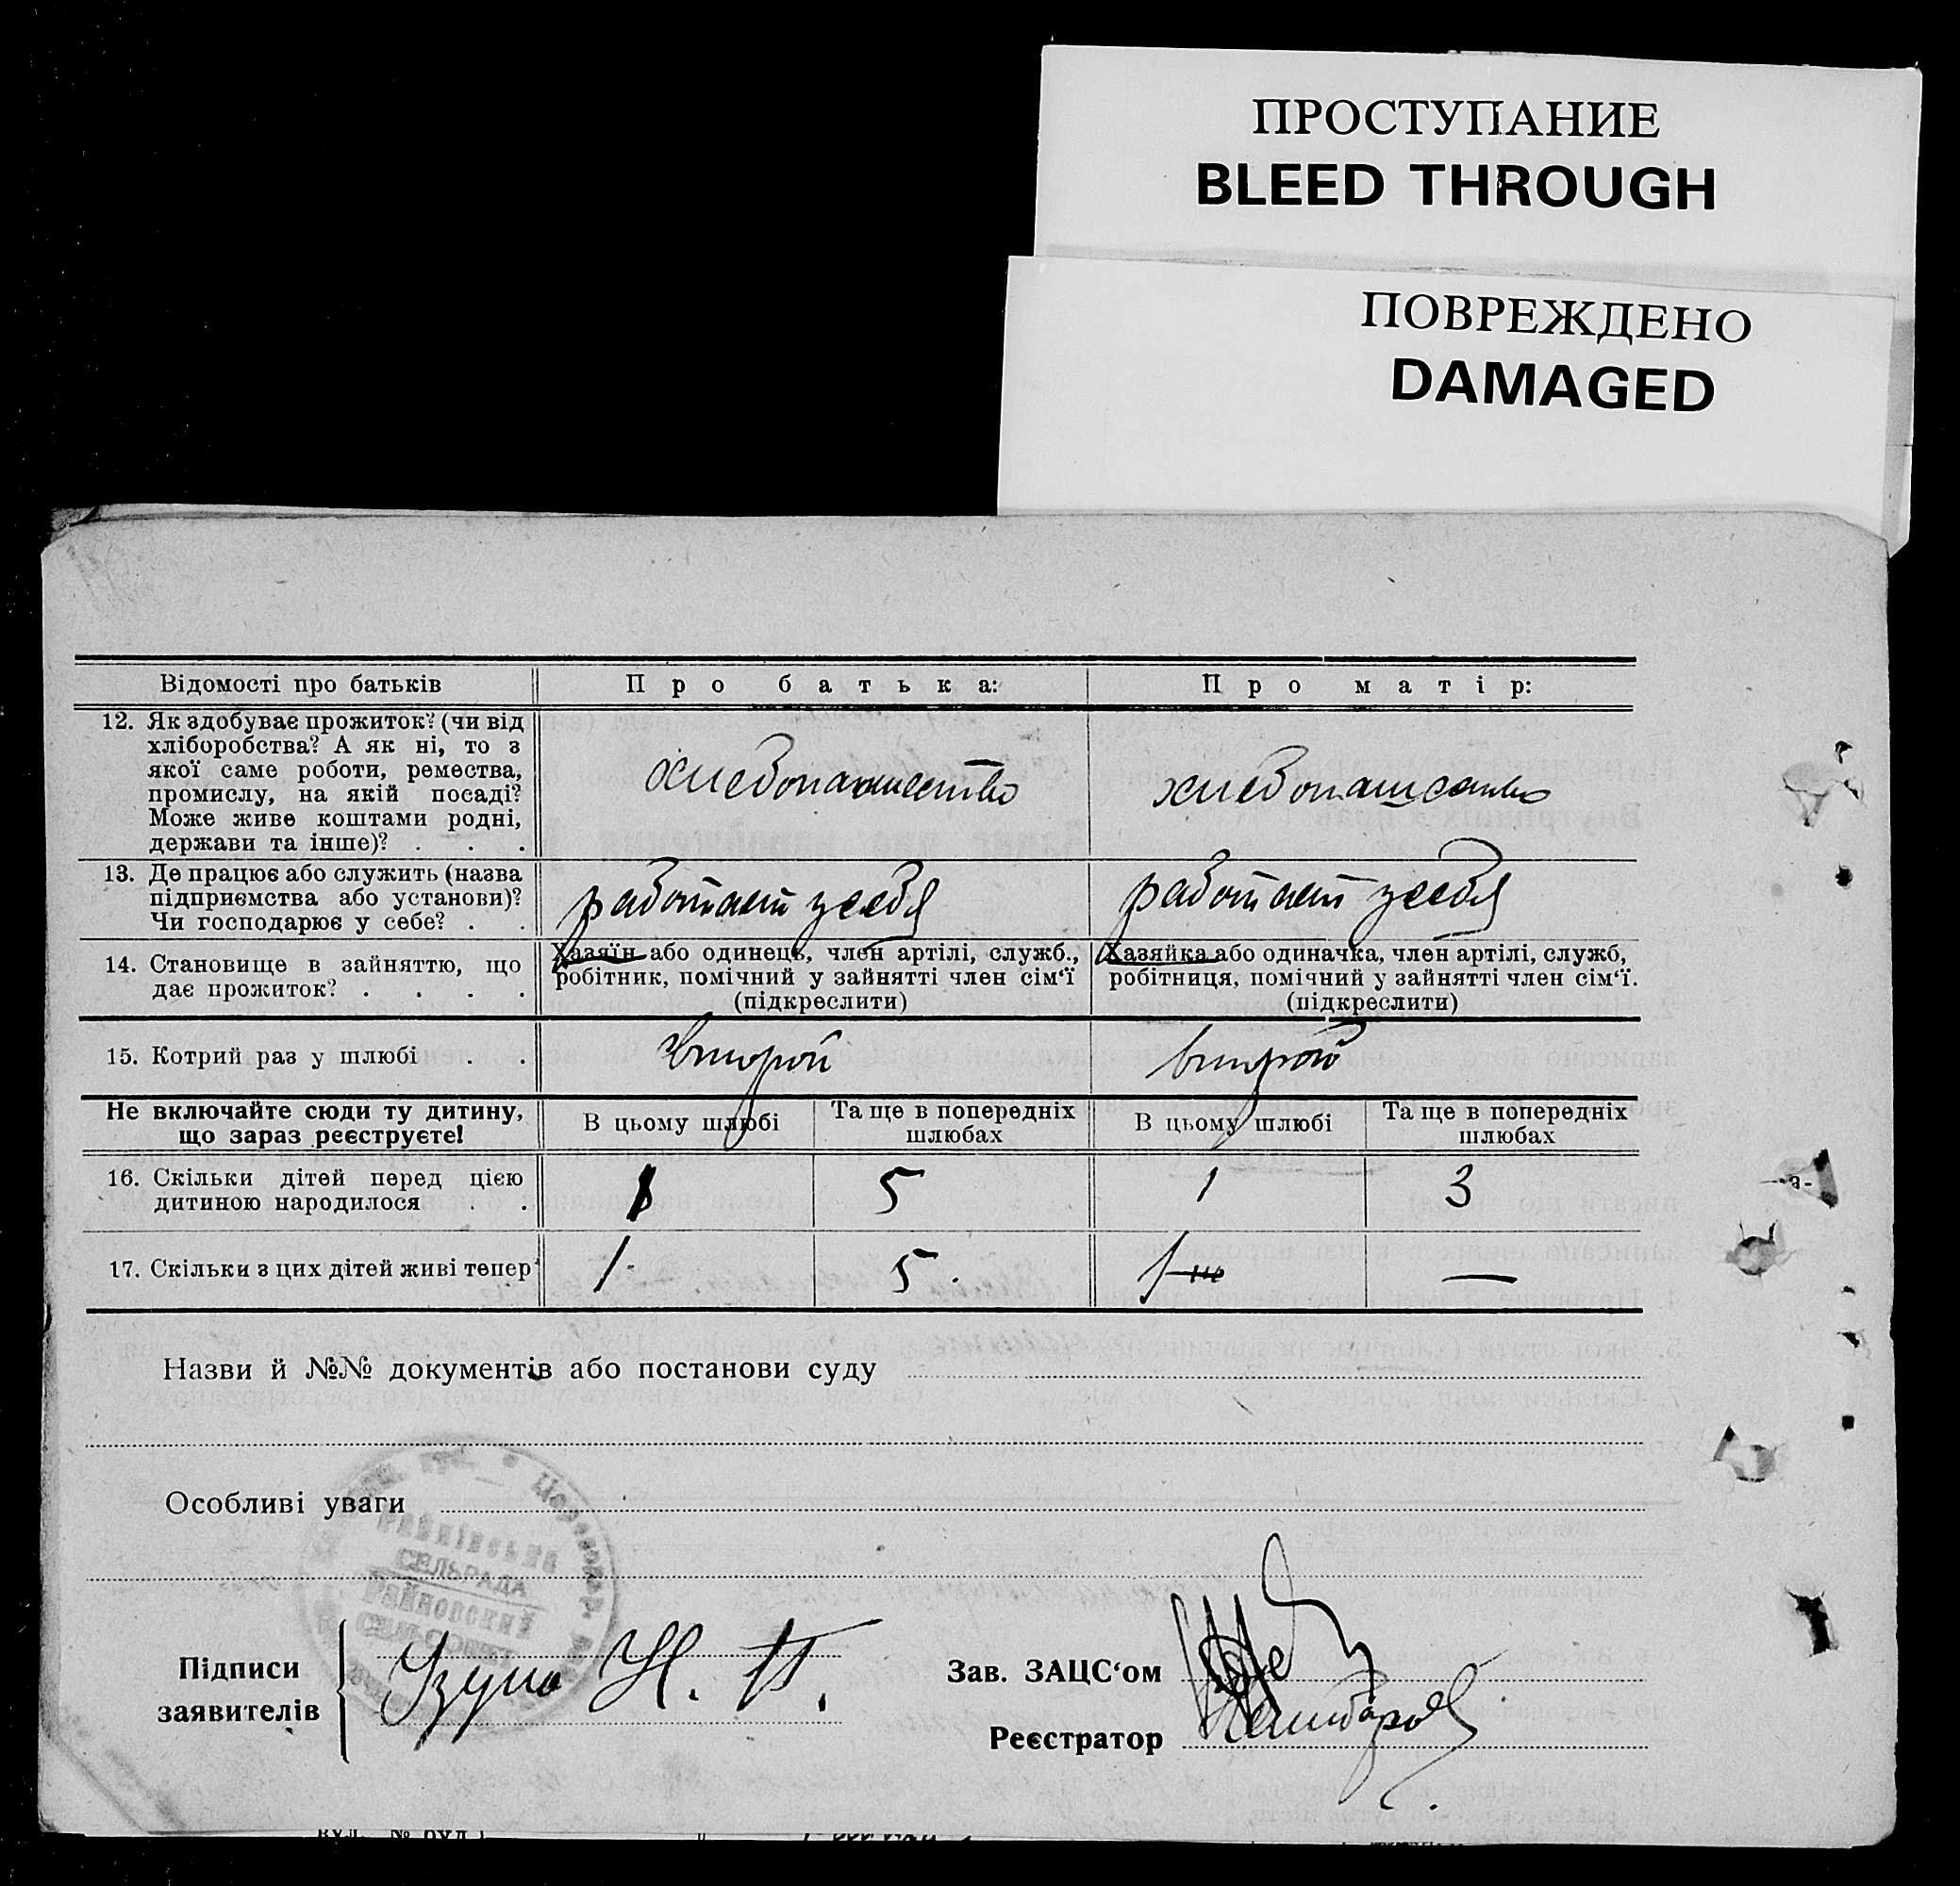 ПРОСТУПАНИЕ
BLEED THROUGH
ПОВРЕЖДЕНО
DAMAGED
Відомості про батьків Про батька: Про матір:
12. Як здобуває прожиток? (чи від
хліборобства? А як ні, то з
якої саме роботи, ремества,
промислу, на якій посаді?
Може живе коштами родні,
держави та інше)? . . .
хлебопашество хлебопашество
13. Де працює або служить (назва
підприємства або установи)?
Чи господарює у себе? . .
работает у себя работает у себя
14. Становище в зайняттю, що
дає прожиток? . . . .
Хазяїн або одинець, член артілі, служб.,
робітник, помічний у зайнятті член сім‘ї
(підкреслити)
Хазяйка або одиначка, член артілі, служб,
робітниця, помічний у зайнятті член сім‘ї.
(підкреслити)
15. Котрий раз у шлюбі . . второй второй
Не включайте сюди ту дитину,
що зараз реєструєте!
В цьому шлюбі Та ще в попередніх
шлюбах
В цьому шлюбі Та ще в попередніх
шлюбах
16. Скільки дітей перед цією
дитиною народилося . .
1 5 1 3
17. Скільки з цих дітей живі тепер 1 5. 1 —
Назви й №№ документів або постанови суду
Особливі уваги
СЕЛЬРАДА
Райновский
СЕЛЬ-СОВЕТ
Підписи
заявителів
Узун Н. П.
Зав. ЗАЦС‘ом
Реєстратор
вул. № буд.